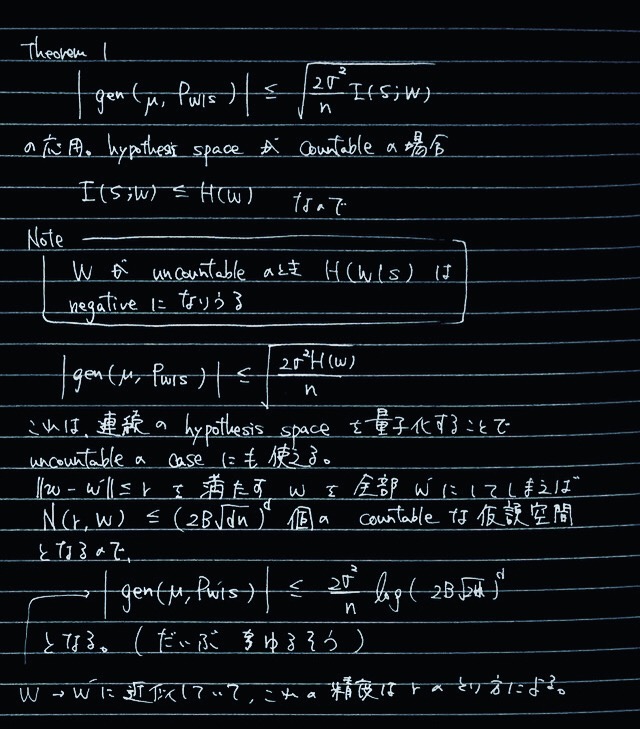 Theorem 1
| gen(μ, P_{W|S}) | ≤ √(2σ²/n I(S;W))
の応用。hypothesis space が countable の場合
I(S;W) ≤ H(W) なので
Note
W が uncountable のとき H(W|S) は
negative になりうる
| gen(μ, P_{W|S}) | ≤ √(2σ²H(W)/n)
これは、連続の hypothesis space を量子化することで
uncountable の case にも使える。
‖w − w'‖ ≤ r を満たす w を全部 w' にしてしまえば
N(r, W) ≤ (2B√dn)^d 個の countable な仮説空間
となるので、
| gen(μ, P_{W'|S}) | ≤ 2σ²/n log(2B√)^d
となる。(だいぶゆるそう)
W → W' に近似していて、これの精度は r のとり方による。